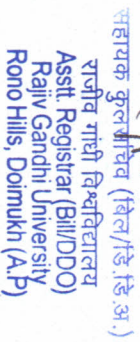 सहायक कुल सचिव (बिल/डी.डी.अ.)
राजीव गांधी विश्वविद्यालय
Asstt. Registrar (Bill/DDO)
Rajiv Gandhi University
Rono Hills, Doimukh (A.P)